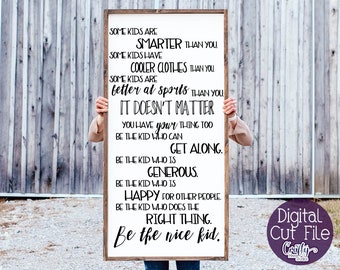 SOME KIDS ARE
SMARTER THAN YOU.
SOME KIDS HAVE
COOLER CLOTHES THAN YOU
SOME KIDS ARE
better at sports THAN YOU
IT DOESN'T MATTER
YOU HAVE your THING TOO
BE THE KID WHO CAN
GET ALONG.
BE THE KID WHO IS
GENEROUS.
BE THE KID WHO IS
HAPPY FOR OTHER PEOPLE.
BE THE KID WHO DOES THE
RIGHT THING.
Be the nice kid.
Digital
Cut File